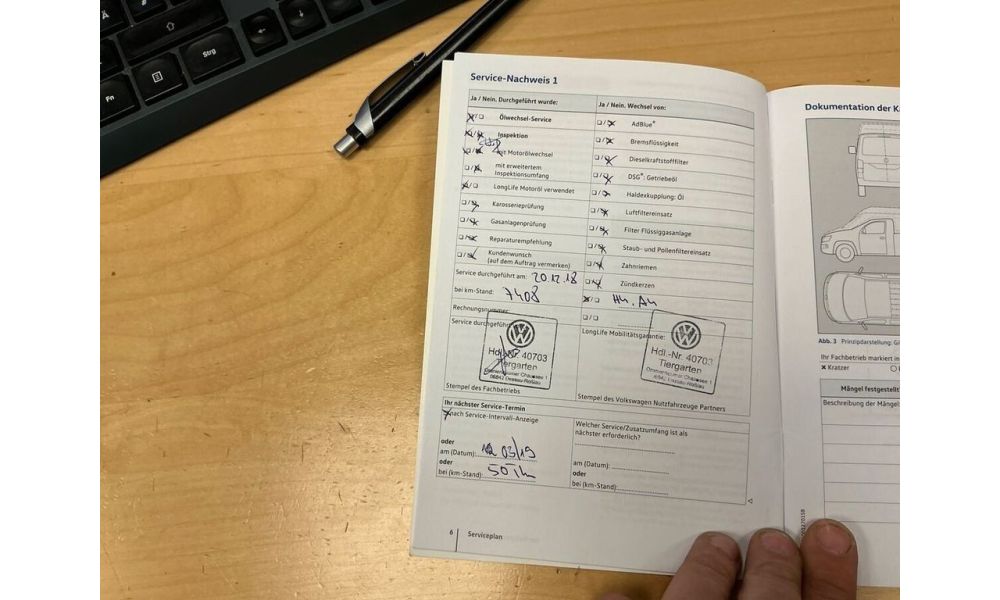 Fn
Strg
Service-Nachweis 1
Ja / Nein. Durchgeführt wurde:
Ölwechsel-Service
Inspektion
mit Motorölwechsel
mit erweitertem
Inspektionsumfang
LongLife Motoröl verwendet
Karosserieprüfung
Gasanlagenprüfung
Reparaturempfehlung
Kundenwunsch
(auf dem Auftrag vermerken)
Service durchgeführt am: 20.12.18
bei km-Stand: 7408
Rechnungsnummer:
Service durchgeführt
Hdl.-Nr. 40703
Tiergarten
06842 Dessau-Roßlau
Stempel des Fachbetriebs
Ja / Nein. Wechsel von:
AdBlue®
Bremsflüssigkeit
Dieselkraftstofffilter
DSG®: Getriebeöl
Haldexkupplung: Öl
Luftfiltereinsatz
Filter Flüssiggasanlage
Staub- und Pollenfiltereinsatz
Zahnriemen
Zündkerzen
LongLife Mobilitätsgarantie:
Hdl.-Nr. 40703
Tiergarten
Stempel des Volkswagen Nutzfahrzeuge Partners
Ihr nächster Service-Termin
nach Service-Intervall-Anzeige
oder
am (Datum): 03/19
oder
bei (km-Stand):
Welcher Service/Zusatzumfang ist als
nächster erforderlich?
am (Datum):
oder
bei (km-Stand):
6 Serviceplan
Dokumentation der
Abb. 3 Prinzipdarstellung:
Ihr Fachbetrieb markiert in
x Kratzer
Mängel festgestellt
Beschreibung der Mängel